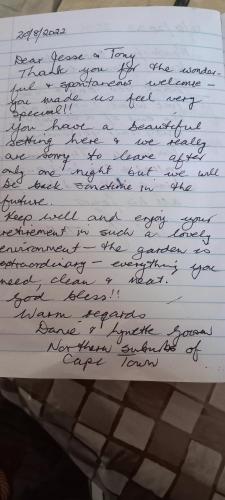 20/8/2022
Dear Jesse & Tony
Thank you for the wonder-
ful & spontaneous welcome -
you made us feel very
special!!
You have a beautiful
setting here & we really
are sorry to leave after
only one night but we will
be back sometime in the
future.
Keep well and enjoy your
retirement in such a lovely
environment - the garden is
extraordinary - everything you
need, clean & neat.
God bless!!
Warm regards
Danie & Lynette
Northern suburbs of
Cape Town